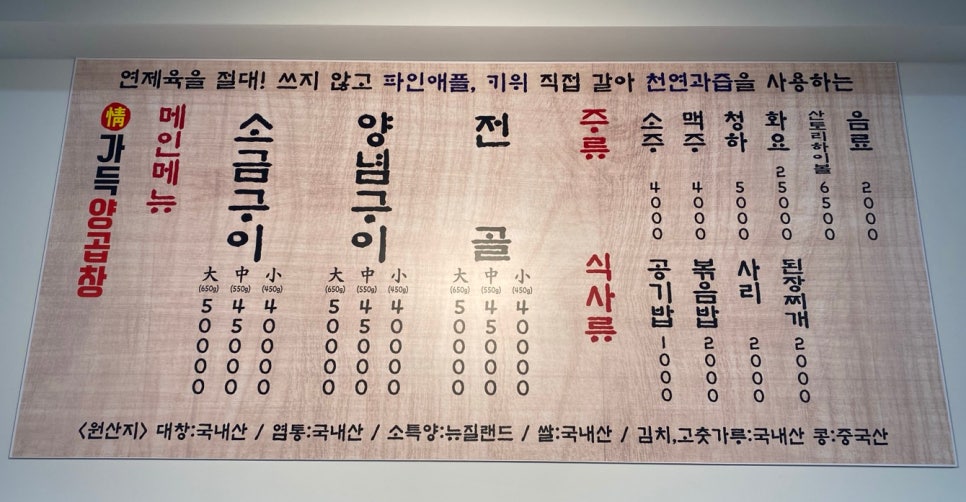 연제육을 절대! 쓰지 않고 파인애플, 키위 직접 갈아 천연과즙을 사용하는
情가득양곱창
메인메뉴
소금구이
大 中 小
(650g) (550g) (450g)
50000 45000 40000
양념구이
大 中 小
(650g) (550g) (450g)
50000 45000 40000
전골
大 中 小
(650g) (550g) (450g)
50000 45000 40000
주류
소주 4000
맥주 4000
청하 5000
화요 25000
산토리하이볼 6500
음료 2000
식사류
공기밥 1000
볶음밥 2000
사리 2000
된장찌개 2000
<원산지> 대창:국내산 / 염통:국내산 / 소특양:뉴질랜드 / 쌀:국내산 / 김치,고춧가루:국내산 콩:중국산